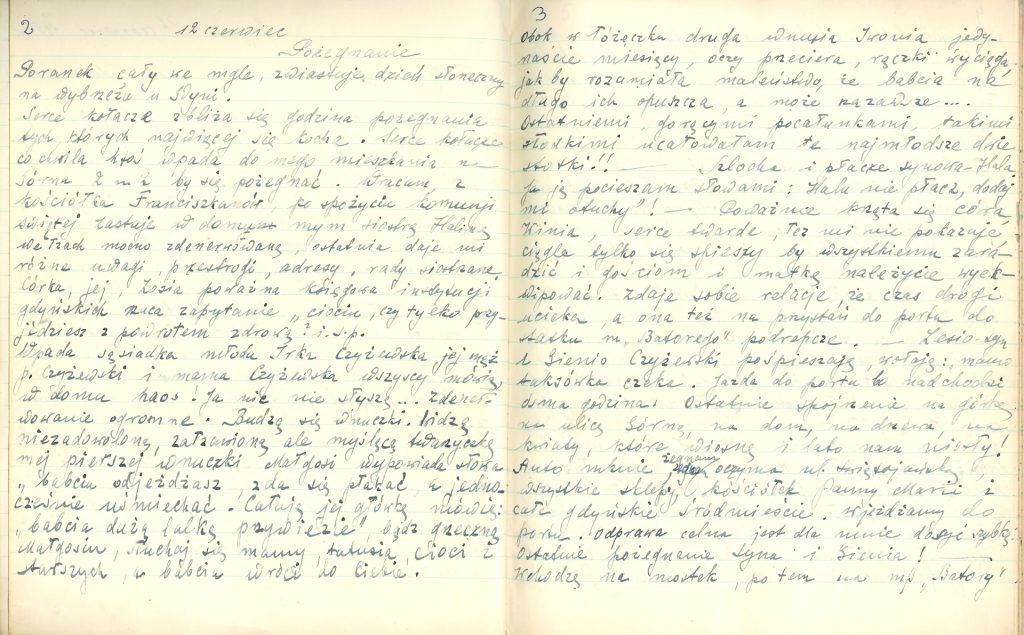 2
12 czerwiec
Pożegnanie
Poranek cały we mgle, zwiastuje dzień słoneczny
na wybrzeżu w Gdyni.
Serce kołacze zbliża się godzina pożegnania
tych, których najwięcej się kocha. Serce kołacze
co chwila ktoś wpada do mego mieszkania na
Górną 2 m 2, by się pożegnać. Wracam, z
kościółka Franciszkanów, po spożyciu komunji
świętej zastaję w domu mym siostrę Halinę
we łzach mocno zdenerwówaną, ostatnia daje mi
różne uwagi, przestrogi, adresy, rady siostrzane.
Córka, jej, Zosia poważna księgowa instytucji
gdyńskich rzuca zapytanie „ciociu, czy tylko przy-
jedziesz z powrotem zdrową? i.s.p.
Wpada sąsiadka młoda Irka Czyżewska jej mąż
p. Czyżewski i mama Czyżewska wszyscy mówią
w domu haos. Ja nic nie słyszę... zdener-
wowanie ogromne. Budzą się wnuczki. Widzę
niezadowoloną, załzawioną ale myślącą twarzyczkę
mej pierszej wnuczki Małgosi wypowiada słowa
„babciu odjeżdżasz, zda się płakać, a jedno-
cześnie uśmiechać. Całuję jej główkę mówię:
„babcia dużą lalkę przywiezie", bądź grzeczną
Małgosiu, słuchaj się mamy, tatusia, cioci i
starszych, a babcia wróci do Ciebie.
3
obok w łóżeczku druga wnusia Iwonia jedy-
naście miesięcy, oczy przeciera, rączki wyciąga,
jak by rozumiała maleństwo, że babcia na
długo ich opuszcza, a może nazawsze....
Ostatniemi, gorącymi pocałunkami, takimi
słodkimi ucałowałam te najmłodsze dwie
stotki!! — Szlocha i płacze synowa-Hala
Ja ją pocieszam słowami: Halu nie płacz, dodaj
mi otuchy"! — Poważnie krząta się córa
Kinia, serce twarde, Też mi nie pokazuje
ciągle tylko się spieszy by wszystkiemu zara-
dzić i gościom i matkę należycie wyek-
wipować. Zdaje sobie relację, że czas drogi
ucieka, a ona też na przystań do portu do
statku m „Batorego" podrepcze. — Lesio-syn
i Gienio Czyżewski pospieszają, wołają: „mamo
taksówka czeka. Jazda do portu bo nadchodzi
ósma godzina. Ostatnie spojrzenie na górkę
na ulicę Górną, na dom, na drzewa, na
kwiaty, które wiosną i lato nam niosły!
Auto mknie żegnam oczyma ul. świętojańską,
wszystkie sklepy, kościółek Panny Marii i
całe gdyńskie śródmieście. Wjeżdżamy do
portu. Odprawa celna, jest dla mnie dosyć szybką.
Ostatnie pożegnanie syna i Gienia! —
Wchodzę na mostek, po tem na mp „Batory"